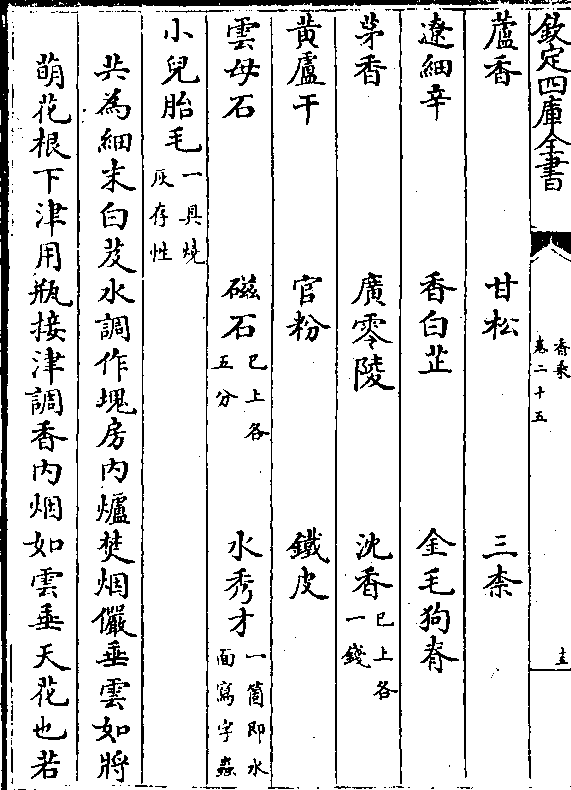 欽定四庫全書
香乘
卷二十五
蘆香 甘松 三柰
遼細辛 香白芷 金毛狗脊
茅香 廣零陵 沈香已上各一錢
黃盧干 官粉 鐵皮
雲母石 磁石已上各五分 水秀才一箇即水面寫字蟲
小兒胎毛一具燒灰存性
共為細末白芨水調作塊房內爐焚烟儼垂雲如將
萌花根下津用瓶接津調香內烟如雲垂天花也若